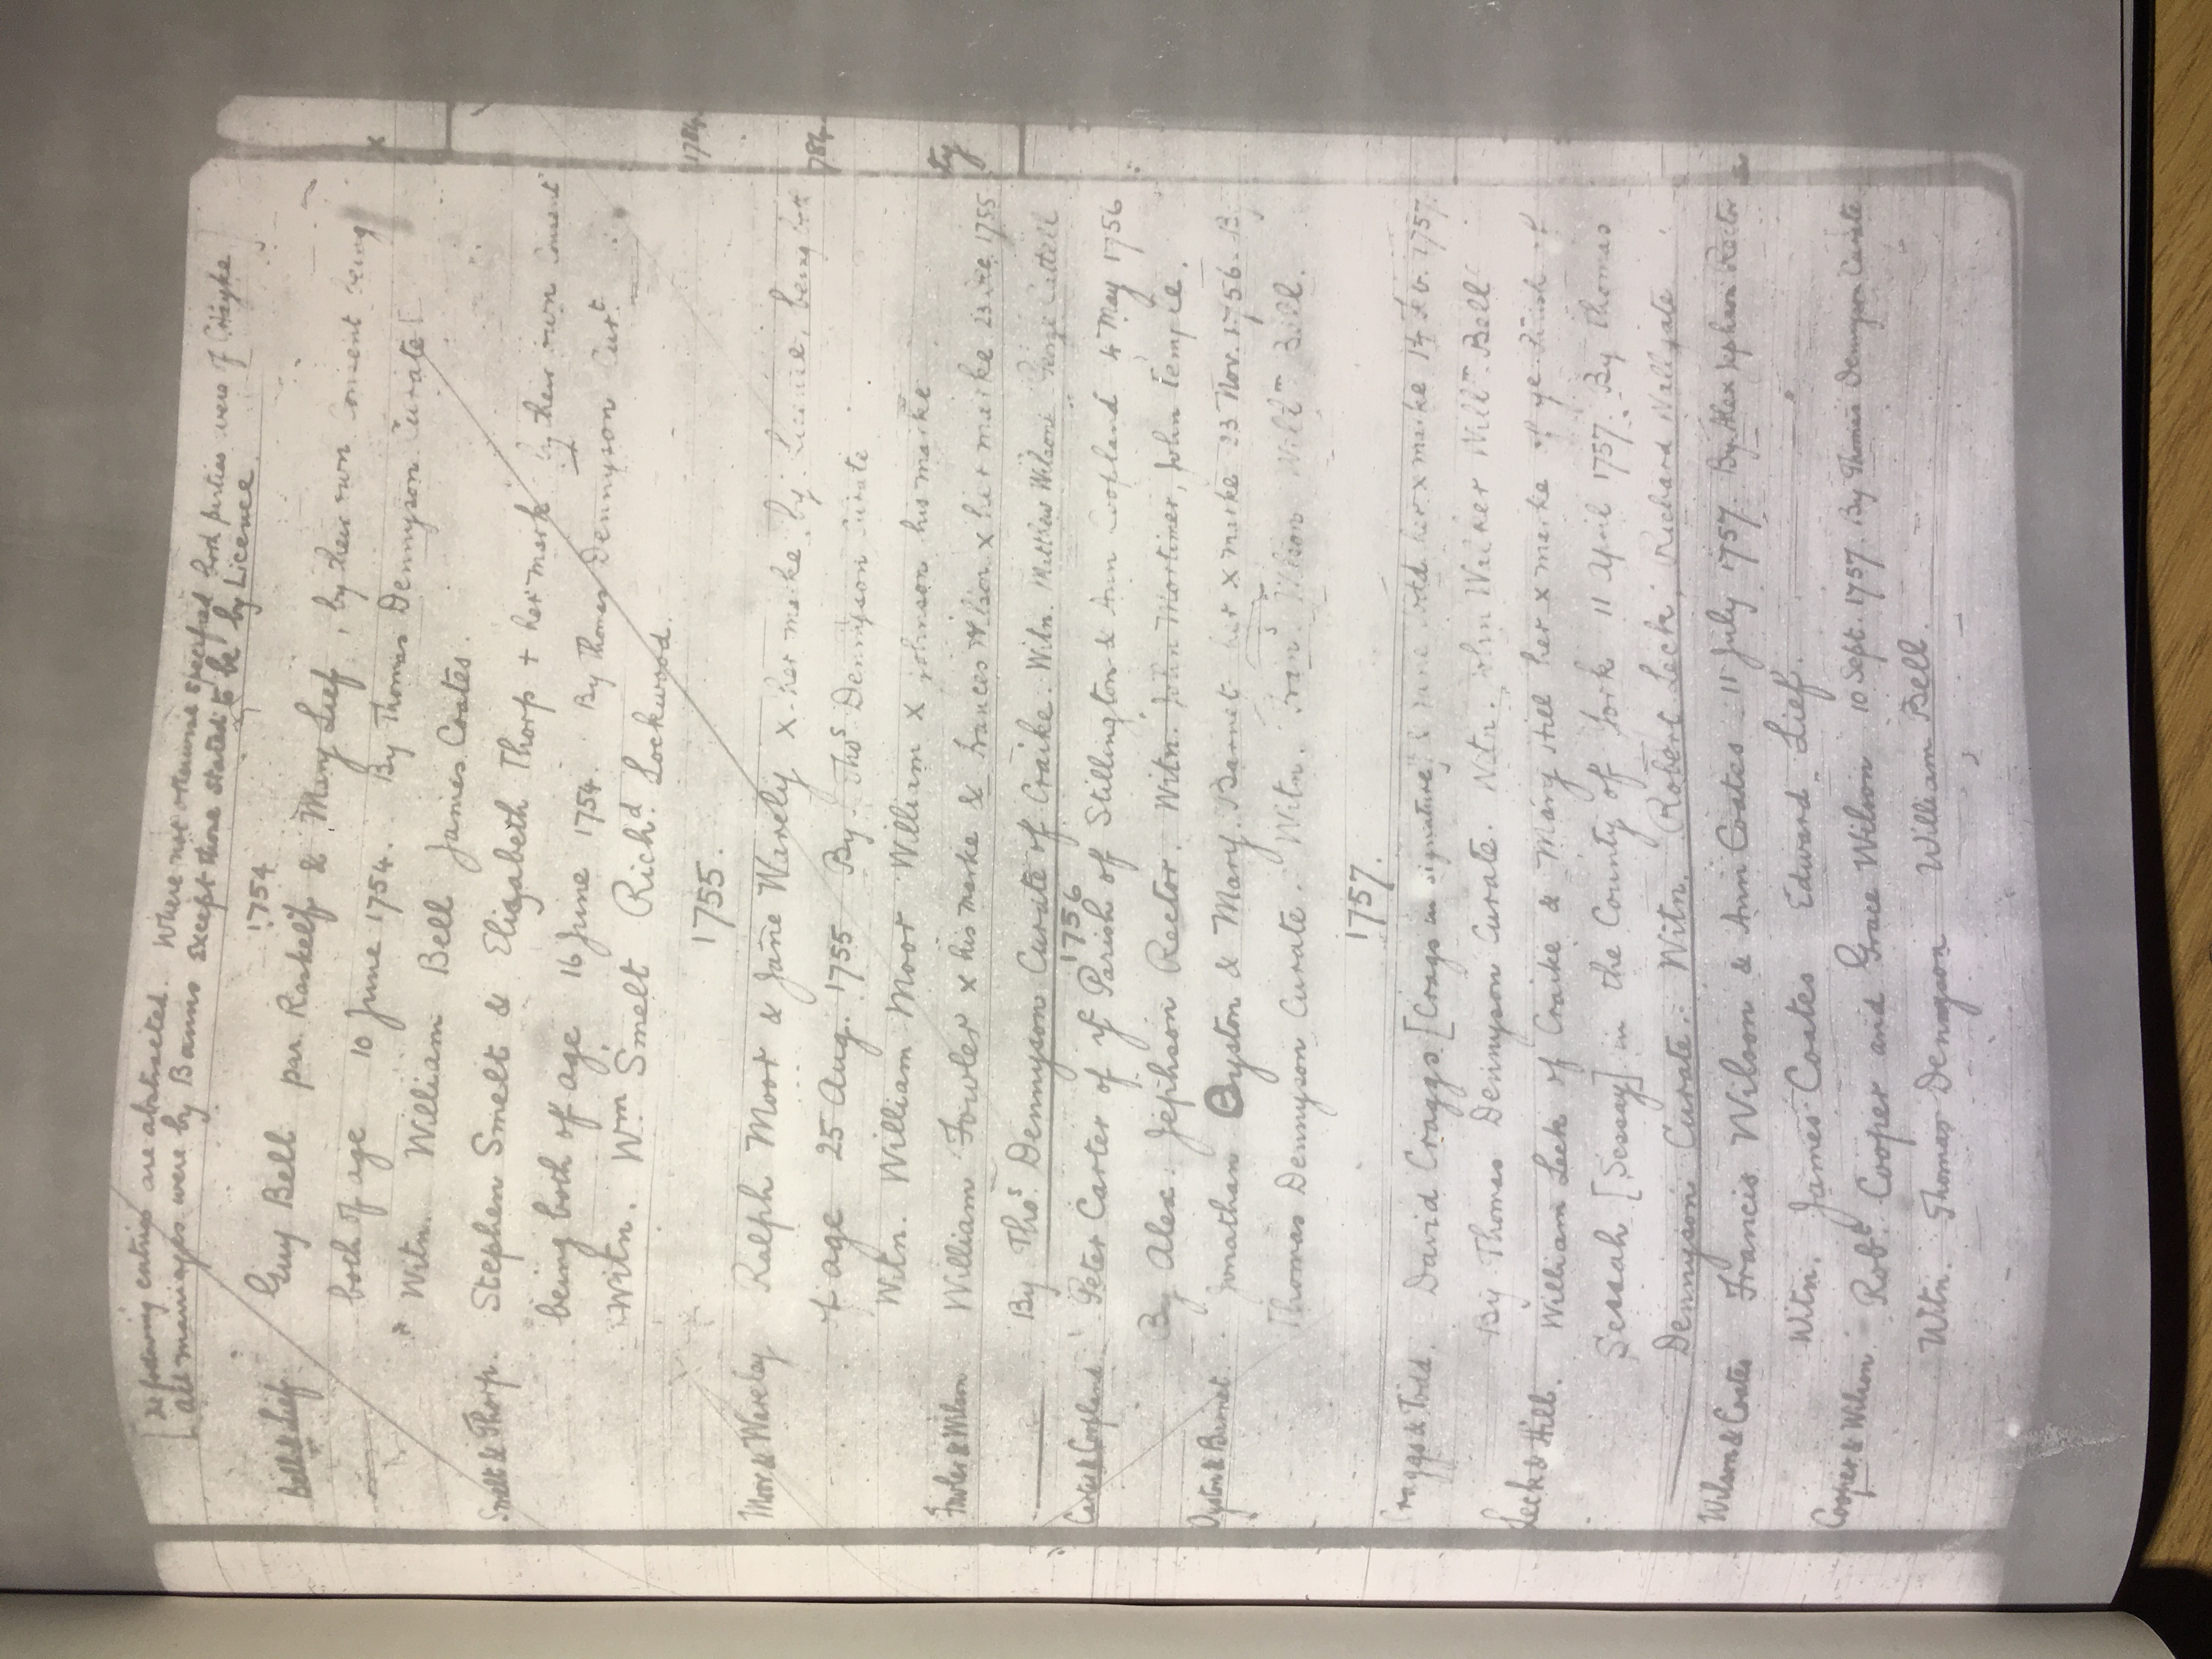 [The following entries are abstracted. Where not otherwise specified both parties were of Crayke
all marriages were by Banns except those stated to be by Licence.
1754
Bell & Lief Guy Bell par. Raskelf & Mary Lief, by their own Consent being
both of age 10 June 1754. By Thomas Dennyson Curate
Witn. William Bell James Coates.
Smelt & Thorp. Stephen Smelt & Elizabeth Thorp + her mark by their own Consent
being both of age, 16 June 1754. By Thomas Dennyson Curt
Witn. Wm Smelt Richd. Lockwood.
1755.
Moor & Wereley Ralph Moor & Jane Werely x her marke by Licence, being both
of age 25 Aug. 1755 By Thos Dennyson Curate.
Witn. William Moor William x Johnson his marke
Fowler & Wilson William Fowler x his marke & Frances Wilson x her marke 23 1755
By Thos Dennyson Curate of Craike. Witn. Matthew Wilson
1756
Carter & Coopland Peter Carter of ye Parish of Stillington & Ann Coopland 4 May 1756
By Alex. Jephson Rector. Witn. John Mortimer, John Temple.
Oyston & Barnet. Jonathan Oyston & Mary Barnet her x marke 23 Nov. 1756. B
Thomas Dennyson Curate. Witn. Wilson Willm Bell.
1757.
Craggs & Todd. David Craggs [Crags in signature] & Todd her x marke 14 Feb. 1757
By Thomas Dennyson Curate. Witn. John Willm Bell
Leck & Hill. William Leck of Craike & Mary Hill her x marke of ye Parish of
Sessah [Sessay] in the County of York 11 April 1757. By Thomas
Dennyson Curate. Witn. Robert Leck, Richard
Wilson & Coates Francis Wilson & Ann Coates 11 July 1757. By Alex Jephson Rector
Witn. James Coates Edward Lief.
Cooper & Wilson. Robt. Cooper and Grace Wilson 10 Sept. 1757. By Thomas Dennyson Curate
Witn. Thomas Denngson William Bell.